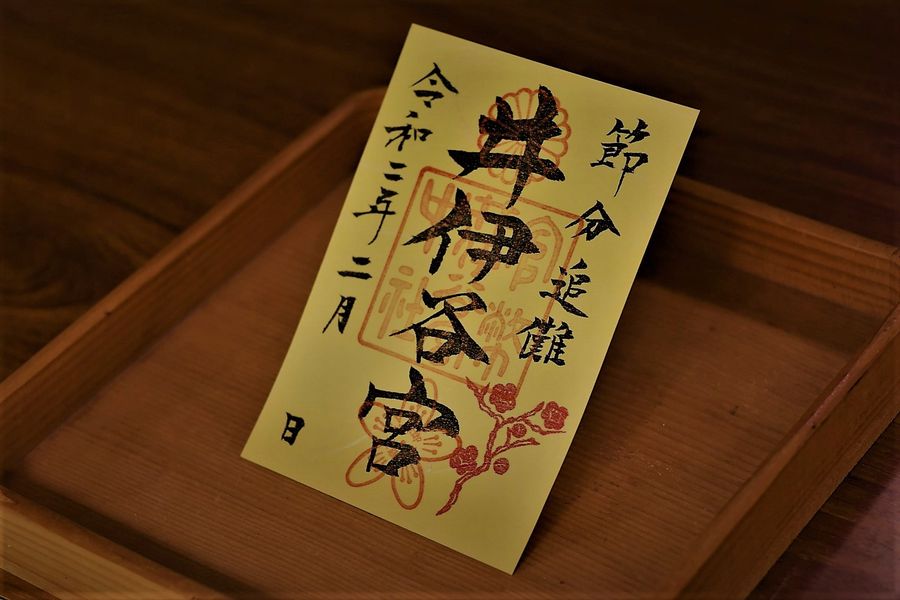 節分追儺
井伊谷宮
令和二年二月 日